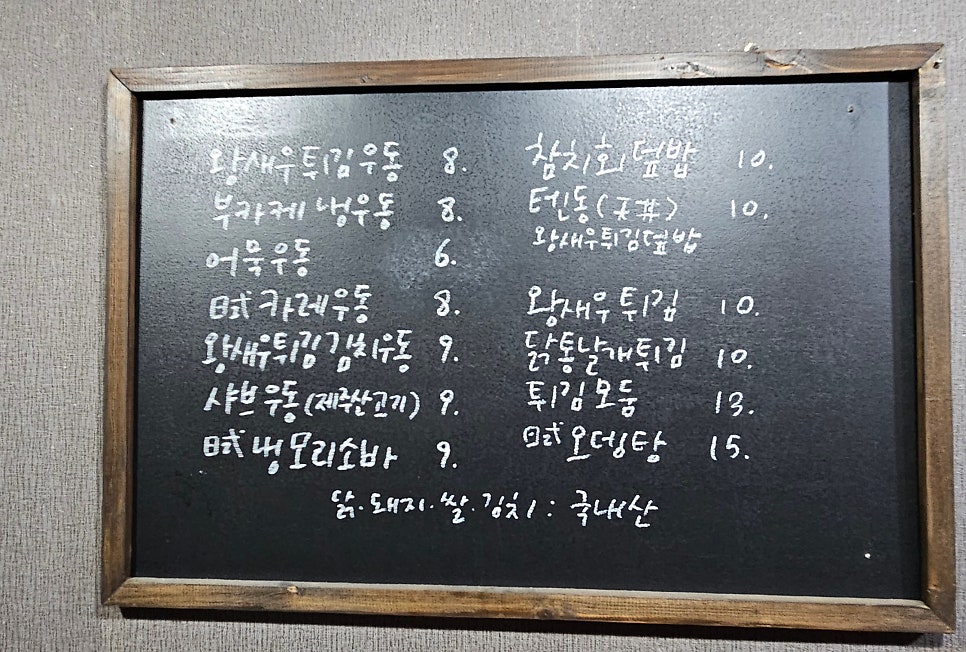 왕새우튀김우동 8.
부카케냉우동 8.
어묵우동 6.
日式 카레우동 8.
왕새우튀김김치우동 9.
샤브우동(제주산고기) 9.
日式 냉모리소바 9.
참치회덮밥 10.
텐동(天丼) 10.
왕새우튀김덮밥
왕새우튀김 10.
닭통날개튀김 10.
튀김모둠 13.
日式 오뎅탕 15.
닭.돼지.쌀.김치: 국내산